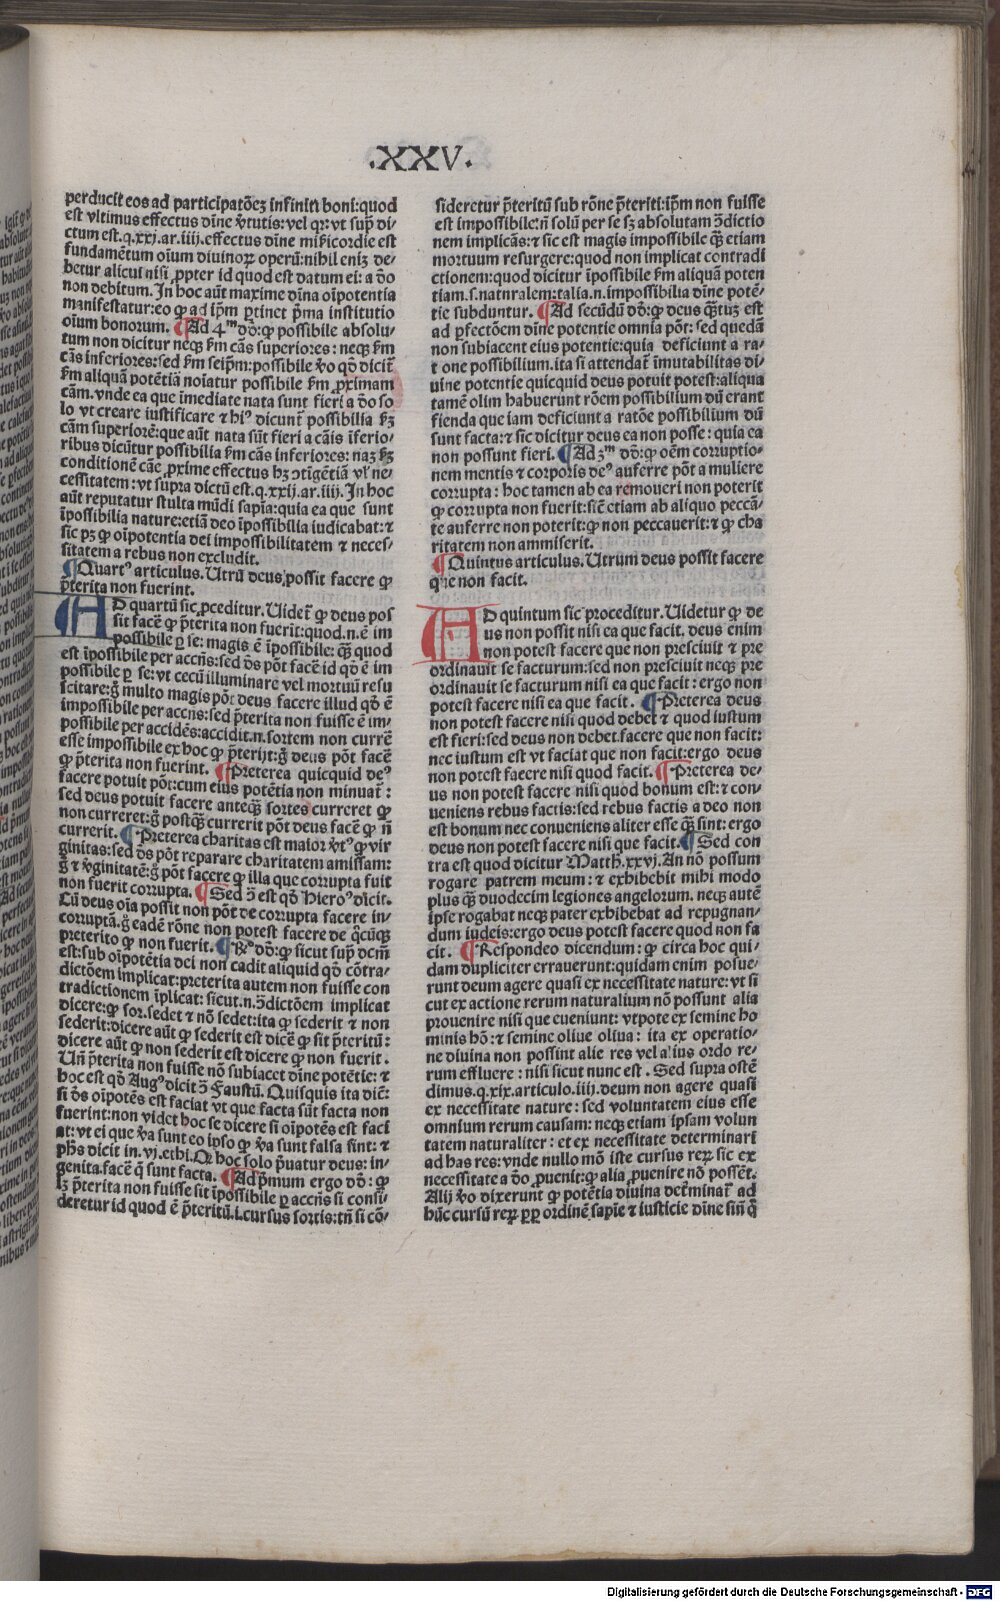 .XXV.
perducit eos ad participatõeʒ infiniti boni:quod
est vltimus effectus dīne v̄tutis: vel qꝛ: vt supͣ di⸗
ctum est.q.xxj.ar.iiij.effectus dīne mīẽicordie est
fundamẽtum oīum diuinoꝝ operū:nihil eniʒ de⸗
betur alicui nisi ꝓpter id quod est datum ei: a dõ
non debitum. In hoc aūt maxime dīna oīpotentia
manifestatur:eo ꝙ ad ip̄m ꝑtinet pͥma institutio
oīum bonorum. ¶Ad 4ᵐ dõ:ꝙ possibile absolu⸗
tum non dicitur neqꝫ ẜm cās superiores: neqꝫ ẜm
cās inferiores:sed ẜm seip̄m:possibile v̄o qd̄ dicit̄
ẜm aliquā potẽtiā noīatur possibile ẜm ꝓximam
cām.vnde ea que īmediate nata sunt fieri a dõ so
lo vt creare iustificare ⁊ hiꝰ dicunt̄ possibilia ẜʒ
cām superiorē:que aūt nata sūt fieri a cāis īferio⸗
ribus dicūtur possibilia ẜm cās inferiores: naʒ ẜʒ
conditionē cāe ꝓxime effectus hʒ ꝯtīgētiā vl̄ ne⸗
cessitatem: vt supra dictū est.q.xxij.ar.iiij. In hoc
aūt reputatur stulta mūdi sapīa:quia ea que sunt
īpossibilia nature:etiā deo īpossibilia iudicabat:⁊
sic pʒ ꝙ oīpotentia dei impossibilitatem ⁊ neces⸗
sitatem a rebus non excludit.
¶Quartꝰ articulus. Utrū deus possit facere ꝙ
p̄terita non fuerint.
AD quartū sic ꝓceditur. Uidet̄ ꝙ deus pos
sit facē ꝙ p̄terita non fuerīt:quod.n.ē im
possibile ꝑ se: magis ē īpossibile: qꝫ̄ quod
est īpossibile per accn̄s:sed d̄s pōt facē id qd̄ ē im
possibile ꝑ se: vt cecū illuminare vel mortuū resu
scitare:g̊ multo magis pōt deus facere illud qd̄ ē
impossibile per accn̄s:sed p̄terita non fuisse ē im⸗
possibile per accidēs:accidit.n.sortem non currē
esse impossibile ex hoc ꝙ p̄terijt:g̊ deus pōt facē
ꝙ p̄terita non fuerint. ¶Preterea quicquid deꝰ
facere potuit pōt:cum eius potētia non minuat̄:
sed deus potuit facere anteqꝫ̄ sortes curreret ꝙ
non curreret:g̊ postqꝫ̄ currerit pōt deus facē ꝙ ñ
currerit. ¶Preterea charitas est maior v̄tꝰ ꝙ vir
ginitas:sed d̄s pōt reparare charitatem amissam:
g̊ ⁊ v̄ginitatē:g̊ pōt facere ꝙ illa que corrupta fuit
non fuerit corrupta. ¶Sed ꝯ̄ est qd̄ Hieroꝰ dicit.
Cū deus oīa possit non pōt de corrupta facere in⸗
corruptā.g̊ eadē rōne non potest facere de q̊cūqꝫ
preterito ꝙ non fuerit. ¶Rꝰ dõ:ꝙ sicut supͣ dc̄m
est:sub oīpotētia dei non cadit aliquid qd̄ cōtra⸗
dictōem implicat:preterita autem non fuisse con
tradictionem īplicat: sicut.n.ꝯ̄dictōem implicat
dicere:ꝙ sor.sedet ⁊ nō sedet:ita ꝙ sederit ⁊ non
sederit:dicere aūt ꝙ sederit est dicē ꝙ sit p̄teritū:
dicere aūt ꝙ non sederit est dicere ꝙ non fuerit.
Un̄ p̄terita non fuisse nō subiacet dīne potētie: ⁊
hoc est qd̄ Augꝰ dicit ꝯ̄ Faustū. Quisquis ita dic̄:
si d̄s oīpotēs est faciat vt que facta sūt facta non
fuerint:non videt hoc se dicere si oīpotēs est faci
at:vt ei que v̄a sunt eo ipso ꝙ v̄a sunt falsa sint: ⁊
ph̄s dicit in.vj.ethi.Q hoc solo pͥuatur deus: in⸗
genita.facē q̄ sunt facta. ¶Ad pͥmum ergo dõ: ꝙ
lʒ p̄terita non fuisse sit īpossibile ꝑ accn̄s si consi⸗
deretur id quod ē p̄teritū.i.cursus sortis:tn̄ si cō⸗
sideretur p̄teritū sub rōne p̄teriti:ip̄m non fuisse
est impossibile:ñ solū per se sʒ absolutam ꝯ̄dictio
nem implicās:⁊ sic est magis impossibile qꝫ̄ etiam
mortuum resurgere:quod non implicat contradi
ctionem:quod dicitur īpossibile ẜm aliquā poten
tiam.s.natnralem:talia.n.impossibilia dīne potē⸗
tie subduntur. ¶Ad secūdū dõ:ꝙ deus qꝫ̄tuʒ est
ad ꝑfectōem dīne potentie omnia pōt: sed quedā
non subiacent eius potentie:quia deficiunt a ra⸗
t one possibilium.ita si attendat̄ īmutabilitas di⸗
uine potentie quicquid deus potuit potest:aliqua
tamē olim habuerunt rōem possibilium dū erant
fienda que iam deficiunt a ratōe possibilium dū
sunt facta:⁊ sic dicitur deus ea non posse: quia ea
non possunt fieri. ¶Ad 3ᵐ dõ:ꝙ oēm corruptio⸗
nem mentis ⁊ corporis deꝰ auferre pōt a muliere
corrupta: hoc tamen ab ea remoueri non poterit
ꝙ corrupta non fuerit:sic̄ etiam ab aliquo peccā⸗
te auferre non poterit:ꝙ non peccauerit:⁊ ꝙ cha
ritatem non ammiserit.
¶Quintus articulus. Utrum deus possit facere
que non facit.
AD quintum sic proceditur. Uidetur ꝙ de
us non possit nisi ea que facit. deus enim
non potest facere que non presciuit ⁊ pre
ordinauit se facturum:sed non presciuit neqꝫ pre
ordinauit se facturum nisi ea que facit: ergo non
potest facere nisi ea que facit. ¶Preterea deus
non potest facere nisi quod debet ⁊ quod iustum
est fieri:sed deus non debet facere que non facit:
nec iustum est vt faciat que non facit:ergo deus
non potest faecre nisi quod facit. ¶Preterea de⸗
us non potest facere nisi quod bonum est:⁊ con⸗
ueniens rebus factis:sed rebus factis a deo non
est bonum nec conueniens aliter esse qꝫ̄ sint: ergo
deus non potest facere nisi que facit. ¶Sed con
tra est quod dicitur Matth̄.xxvj.An nō possum
rogare patrem meum: ⁊ exhibebit mihi modo
plus qꝫ̄ duodecim legiones angelorum. neqꝫ autē
ipse rogabat neqꝫ pater exhibebat ad repugnan⸗
dum iudeis:ergo deus potest facere quod non fa
cit. ¶Respondeo dicendum: ꝙ circa hoc qui⸗
dam dupliciter errauerunt:quidam enim posue⸗
runt deum agere quasi ex necessitate nature: vt si
cut ex actione rerum naturalium nō possunt alia
prouenire nisi que eueniunt: vtpote ex semine ho
minis hō: ⁊ semine oliue oliua: ita ex operatio⸗
ne diuina non possint alie res vel alius ordo re⸗
rum effluere: nisi sicut nunc est. Sed supra ostē
dimus.q.xix.articulo.iiij.deum non agere quasi
ex necessitate nature: sed voluntatem eius esse
omnium rerum causam: neqꝫ etiam ipsam volun
tatem naturaliter: et ex necessitate determinari
ad has res: vnde nullo mō iste cursus reꝝ sic ex
necessitate a dõ ꝓuenit:ꝙ alia ꝓuenire nō possēt.
Alij v̄o dixerunt ꝙ potētia diuina det̄minat̄ ad
hūc cursū reꝝ ꝓpꝑ ordinē sapīe ⁊ iusticie dīne sin̄ q̊
Digitalisierung gefördert durch die Deutsche Forschungsgemeinschaft - DFG